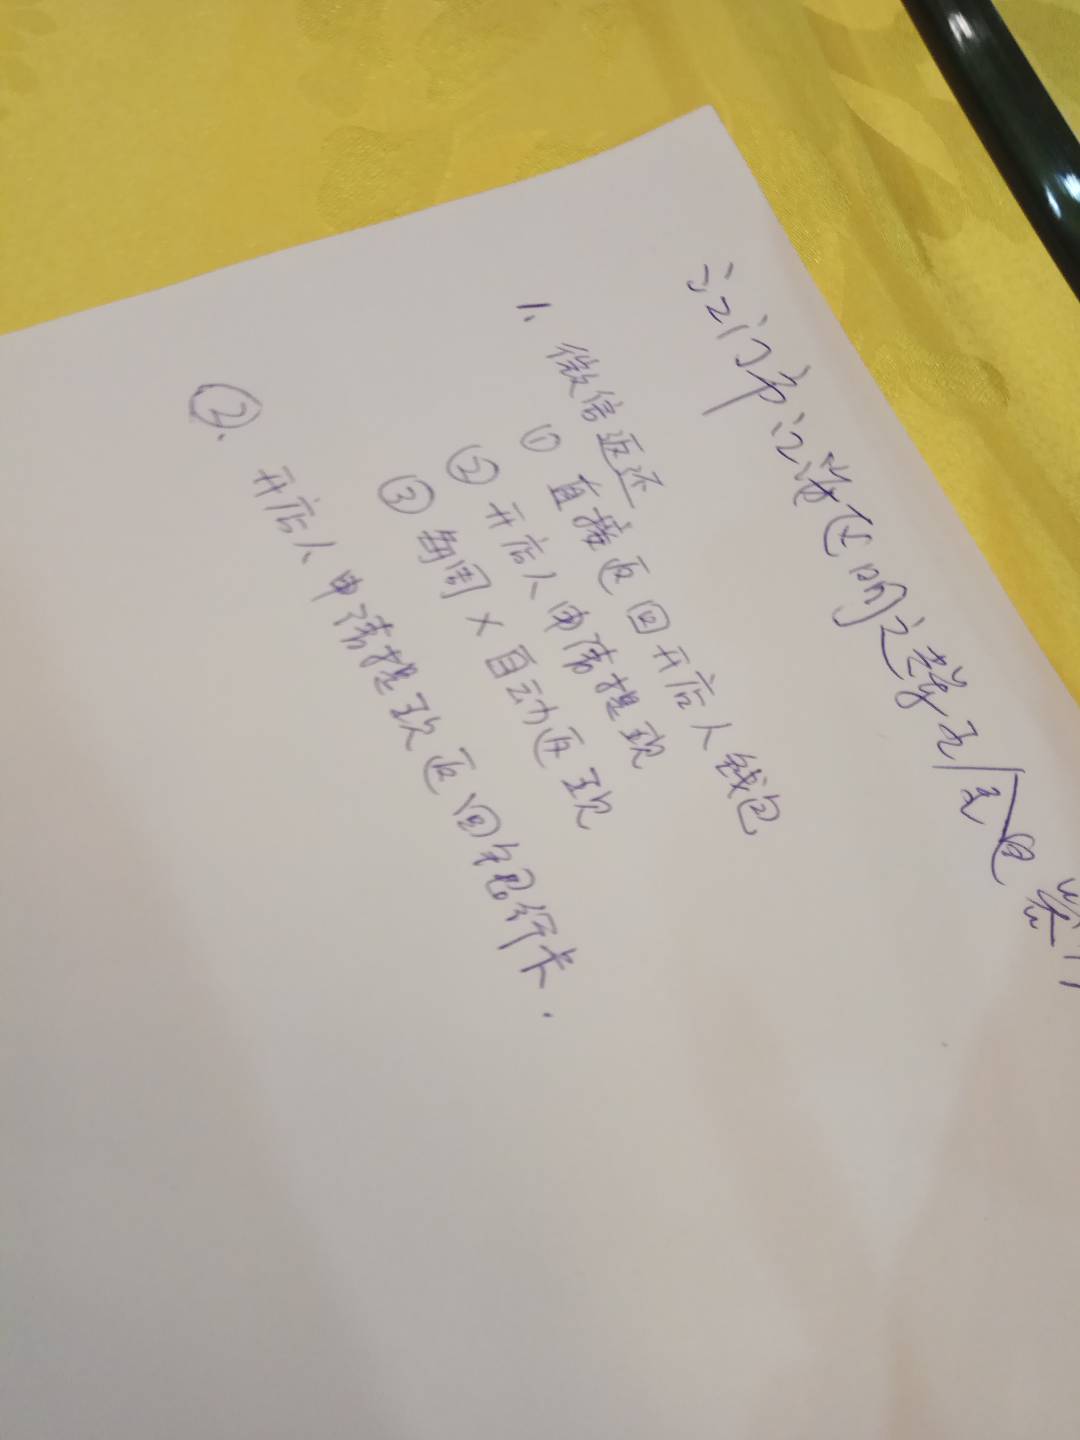 江门市江海区
1、微信返还
① 直接返回开店人钱包
② 开店人申请提现
③ 每周×自动返现
②. 开店人申请提现返回银行卡.